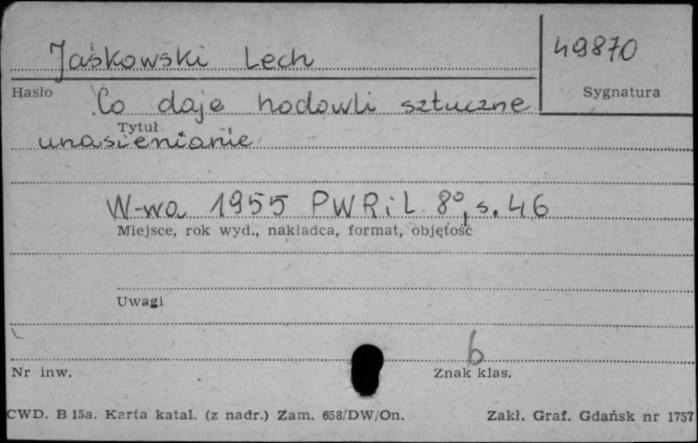 Jaśkowski Lech
49870
Hasło
Sygnatura
Co daje hodowli sztuczne
Tytuł
unasienianie
W-wa 1955 PWRiL 8°, s. 46
Miejsce, rok wyd., nakładca, format, objętość
Uwagi
b
Nr inw.
Znak klas.
CWD. B 15a. Karta katal. (z nadr.) Zam. 658/DW/On.
Zakł. Graf. Gdańsk nr 1757